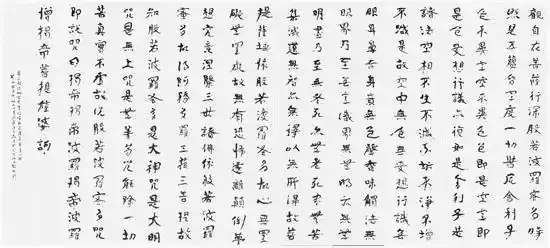 觀自在菩薩行深般若波羅蜜多時
照見五蘊皆空度一切苦厄舍利子
色不異空空不異色色即是空空即
是色受想行識亦復如是舍利子是
諸法空相不生不滅不垢不淨不增
不減是故空中無色無受想行識無
眼耳鼻舌身意無色聲香味觸法無
眼界乃至無意識界無無明亦無無
明盡乃至無老死亦無老死盡無苦
集滅道無智亦無得以無所得故菩
提薩埵依般若波羅蜜多故心無罣
礙無罣礙故無有恐怖遠離顛倒夢
想究竟涅槃三世諸佛依般若波羅
蜜多故得阿耨多羅三藐三菩提故
知般若波羅蜜多是大神咒是大明
咒是無上咒是無等等咒能除一切
苦真實不虛故說般若波羅蜜多咒
即說咒曰揭帝揭帝波羅揭帝波羅
僧揭帝菩提薩婆訶